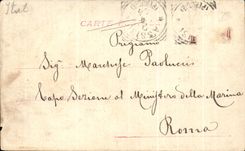 Ital
CARTE
Pregiamo
Sig. Marchese Paolucci
Capo Sezione al Ministero della Marina
Roma